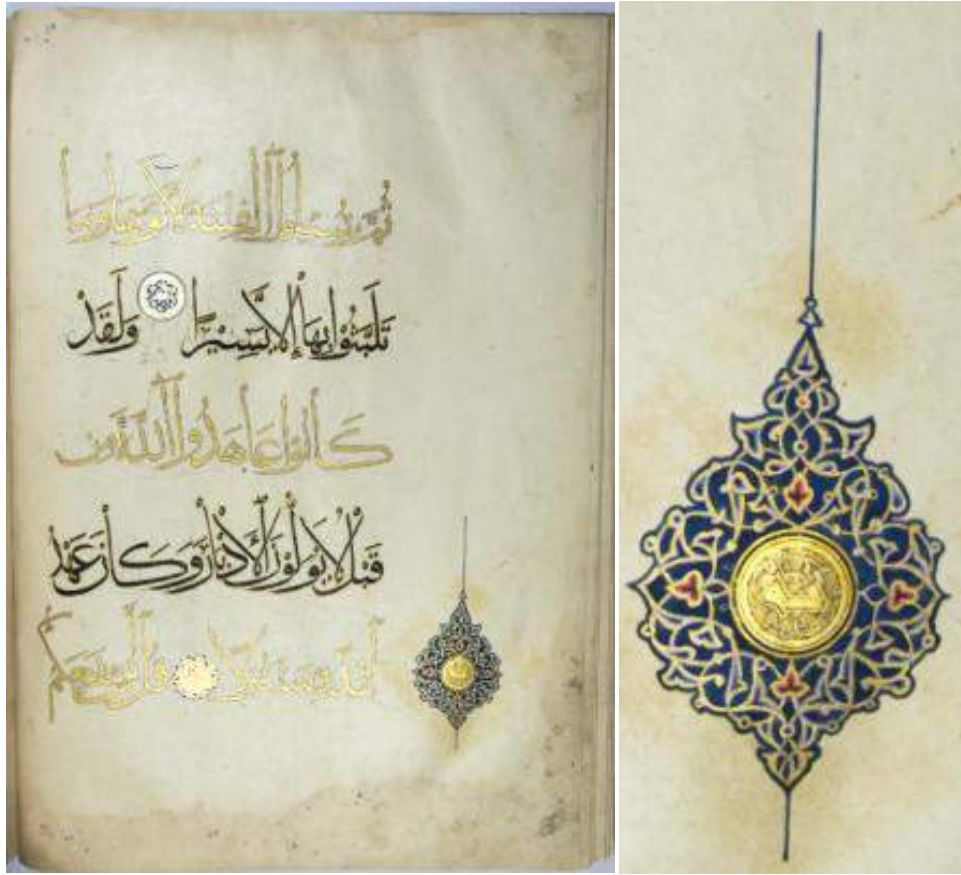 ثُمَّ سُئِلُوا الْفِتْنَةَ لَآتَوْهَا وَمَا
تَلَبَّثُوْا بِهَا إِلَّا يَسِيْرًا وَلَقَدْ
كَانُوا عَاهَدُوا اللَّهَ مِن
قَبْلُ لَا يُوَلُّوْنَ الْأَدْبَارَ وَكَانَ عَهْدُ
اللَّهِ مَسْئُولًا قُل لَّن يَنفَعَكُمُ